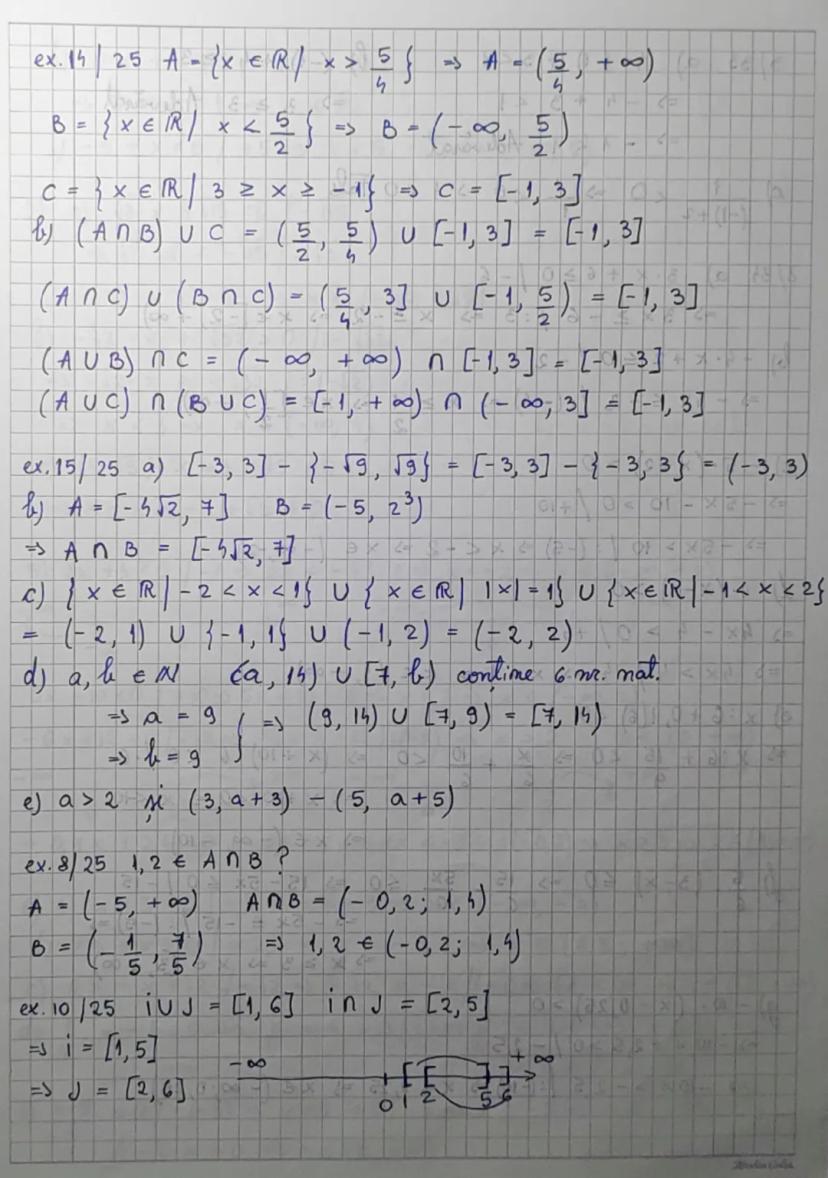 ex. 14 / 25 A = {x ∈ ℝ / x > 5/4 } => A = (5/4, +∞)
B = {x ∈ ℝ / x < 5/2 } => B = (-∞, 5/2)
C = {x ∈ ℝ / 3 ≥ x ≥ -1} => C = [-1, 3]
b) (A ∩ B) ∪ C = (5/2, 5/4) ∪ [-1, 3] = [-1, 3]
(A ∩ C) ∪ (B ∩ C) = (5/4, 3] ∪ [-1, 5/2) = [-1, 3]
(A ∪ B) ∩ C = (-∞, +∞) ∩ [-1, 3] = [-1, 3]
(A ∪ C) ∩ (B ∪ C) = [-1, +∞) ∩ (-∞, 3] = [-1, 3]
ex. 15 / 25 a) [-3, 3] - {-√9, √9} = [-3, 3] - {-3, 3} = (-3, 3)
b) A = [-4√2, 7] B = (-5, 2³)
=> A ∩ B = [-4√2, 7]
c) {x ∈ ℝ / -2 < x < 1} ∪ {x ∈ ℝ / |x| = 1} ∪ {x ∈ ℝ / -1 < x < 2}
= (-2, 1) ∪ {-1, 1} ∪ (-1, 2) = (-2, 2)
d) a, b ∈ ℕ (a, 14) ∪ [7, b) conține 6 nr. nat.
=> a = 9 } => (9, 14) ∪ [7, 9) = [7, 14)
=> b = 9
e) a > 2 și (3, a + 3) - (5, a + 5)
ex. 8 / 25 1,2 ∈ A ∩ B ?
A = (-5, +∞) A ∩ B = (-0,2; 1,4)
B = (-1/5, 7/5) => 1,2 ∈ (-0,2; 1,4)
ex. 10 / 25 i ∪ J = [1, 6] i ∩ J = [2, 5]
=> i = [1, 5]
-∞ +∞
=> J = [2, 6]
0 1 2 5 6